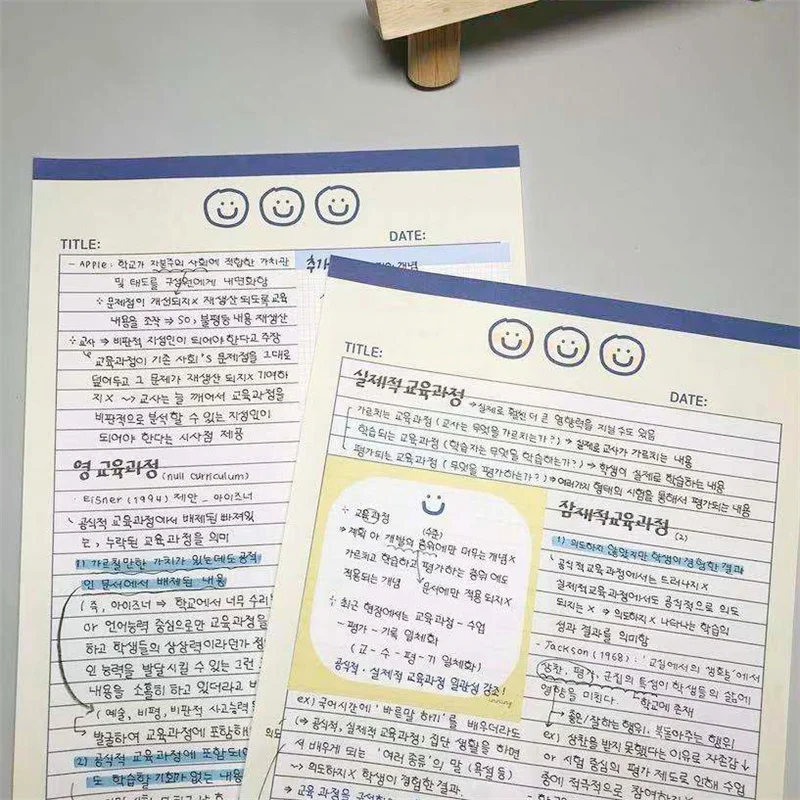 TITLE:
DATE:
- Apple : 학교가 자본주의 사회에 적합한 가치관
및 태도를 구성원에게 내면화함
문제점이 개선되지x 재생산 되도록 교육
내용을 조작 ⇒ so, 불평등 내용 재생산
교사 ⇒ 비판적 지성인이 되어야 한다고 주장
교육과정이 기존 사회's 문제점을 그대로
덮어두고 그 문제가 재생산 되지x 기여하
지x ~> 교사는 늘 깨어서 교육과정을
비판적으로 분석할 수 있는 지성인이
되어야 한다는 시사점 제공
영 교육과정 (null curriculum)
· Eisner (1994) 제안 _ 아이즈너
공식적 교육과정에서 배제된 빠져있
는, 누락된 교육과정을 의미
1) 가르칠만한 가치가 있는데도 공적
인 문서에서 배제된 내용
( 즉, 아이즈너 ⇒ 학교에서 너무 수리
아 언어능력 중심으로만 교육과정을
하고 학생들의 상상력이라던가
인 능력을 발달시킬 수 있는 그런
내용을 소홀히 하고 있더라고
( 예술, 비평, 비판적 사고능력
발굴하여 교육과정에 포함해
2) 공식적 교육과정에 포함되어
도 학습할 기회가 없는 내용
추가
개념
TITLE:
DATE:
실제적 교육과정 → 실제로 훨씬 더 큰 영향력을 지닐 수도 있음
가르치는 교육과정 (교사는 무엇을 가르치는가?) → 실제로 교사가 가르치는 내용
학습되는 교육과정 (학습자는 무엇을 학습하는가?) → 학생이 실제로 학습하는 내용
평가되는 교육과정 (무엇을 평가하는가?) → 여러가지 형태의 시험을 통해서 평가되는 내용
교육과정 (수준)
⇒ 계획 아 개발의 범위에만 머무는 개념x
가르치고 학습하고 평가하는 범위에도
적용되는 개념 문서에만 적용 되지x
최근 현장에서는 교육과정 - 수업
- 평가 - 기록 일체화
(교 - 수 - 평 - 기 일체화)
공식적·실제적 교육과정 일관성 강조!
잠재적교육과정 (2)
1) 의도하지 않았지만 학생이 경험한 결과
공식적 교육과정에서는 드러나지x
실제적교육과정에서도 공식적으로 의도
되지는 x → 의도하지x 나타나는 학습의
성과 결과를 의미함
- Jackson (1968) : '교실에서의 생활'에서
상찬, 평가, 군집의 특성이 학생들의 삶에
영향을 미친다. 학교에 존재
좋은/잘하는 행위, 북돋아주는 행위
ex) 상찬을 받지 못했다는 이유로 자존감↓
or 시험 중심의 평가 제도로 인해 수업
중에 적극적으로 참여하
ex) 국어시간에 '바른말 하기'를 배우더라도
(⇒ 공식적, 실제적 교육과정) 집단 생활을 하면
서 배우게 되는 '여러 종류'의 말 (욕설 등)
~> 의도하지x 학생이 경험한 결과